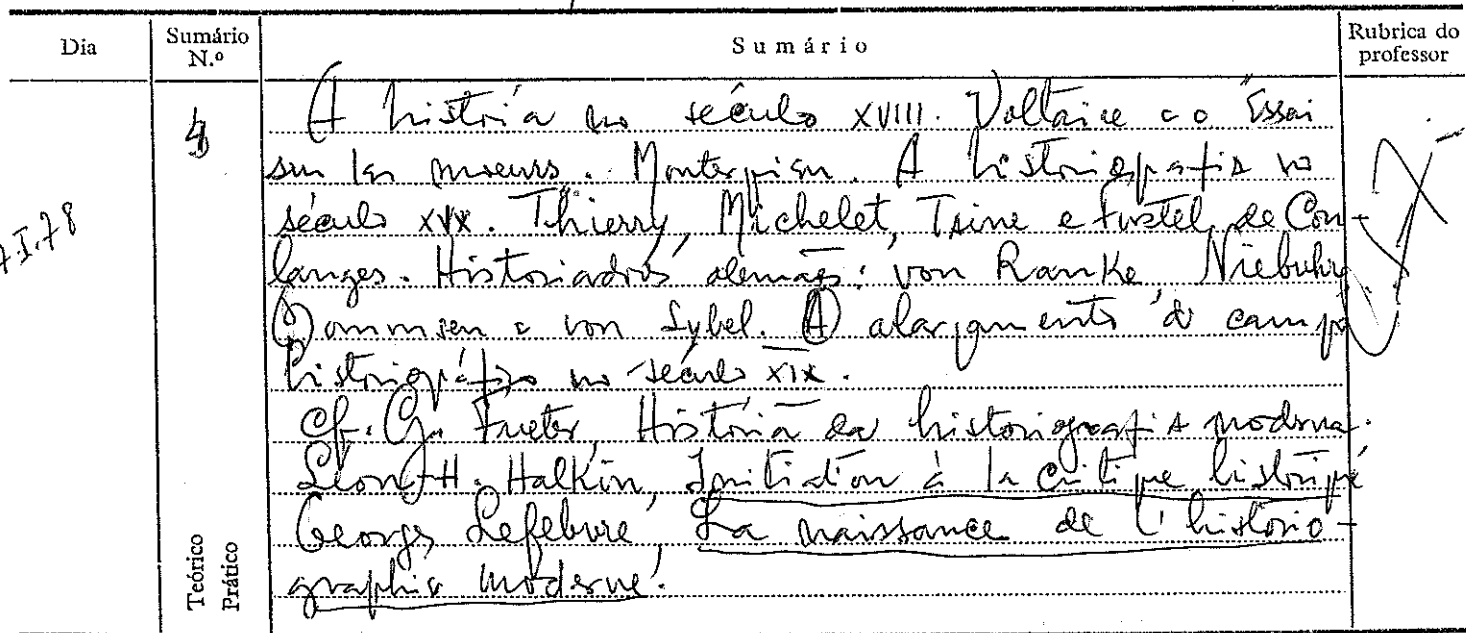 Dia
Sumário N.º
Sumário
Rubrica do professor
7.I.78
A história no século XVIII. Voltaire e o Essai
sur les moeurs. Montesquieu. A historiografia no
século XIX. Thierry, Michelet, Taine e Fustel de Cou-
langes. Historiadores alemães: von Ranke, Niebuhr,
Mommsen e von Sybel. O alargamento do campo
historiográfico no século XIX.
Cf. G. Fueter, História da historiografia moderna.
Léon-H. Halkin, Initiation à la critique historique
Georges Lefebvre, La naissance de l'historio-
graphie moderne.
Teórico
Prático